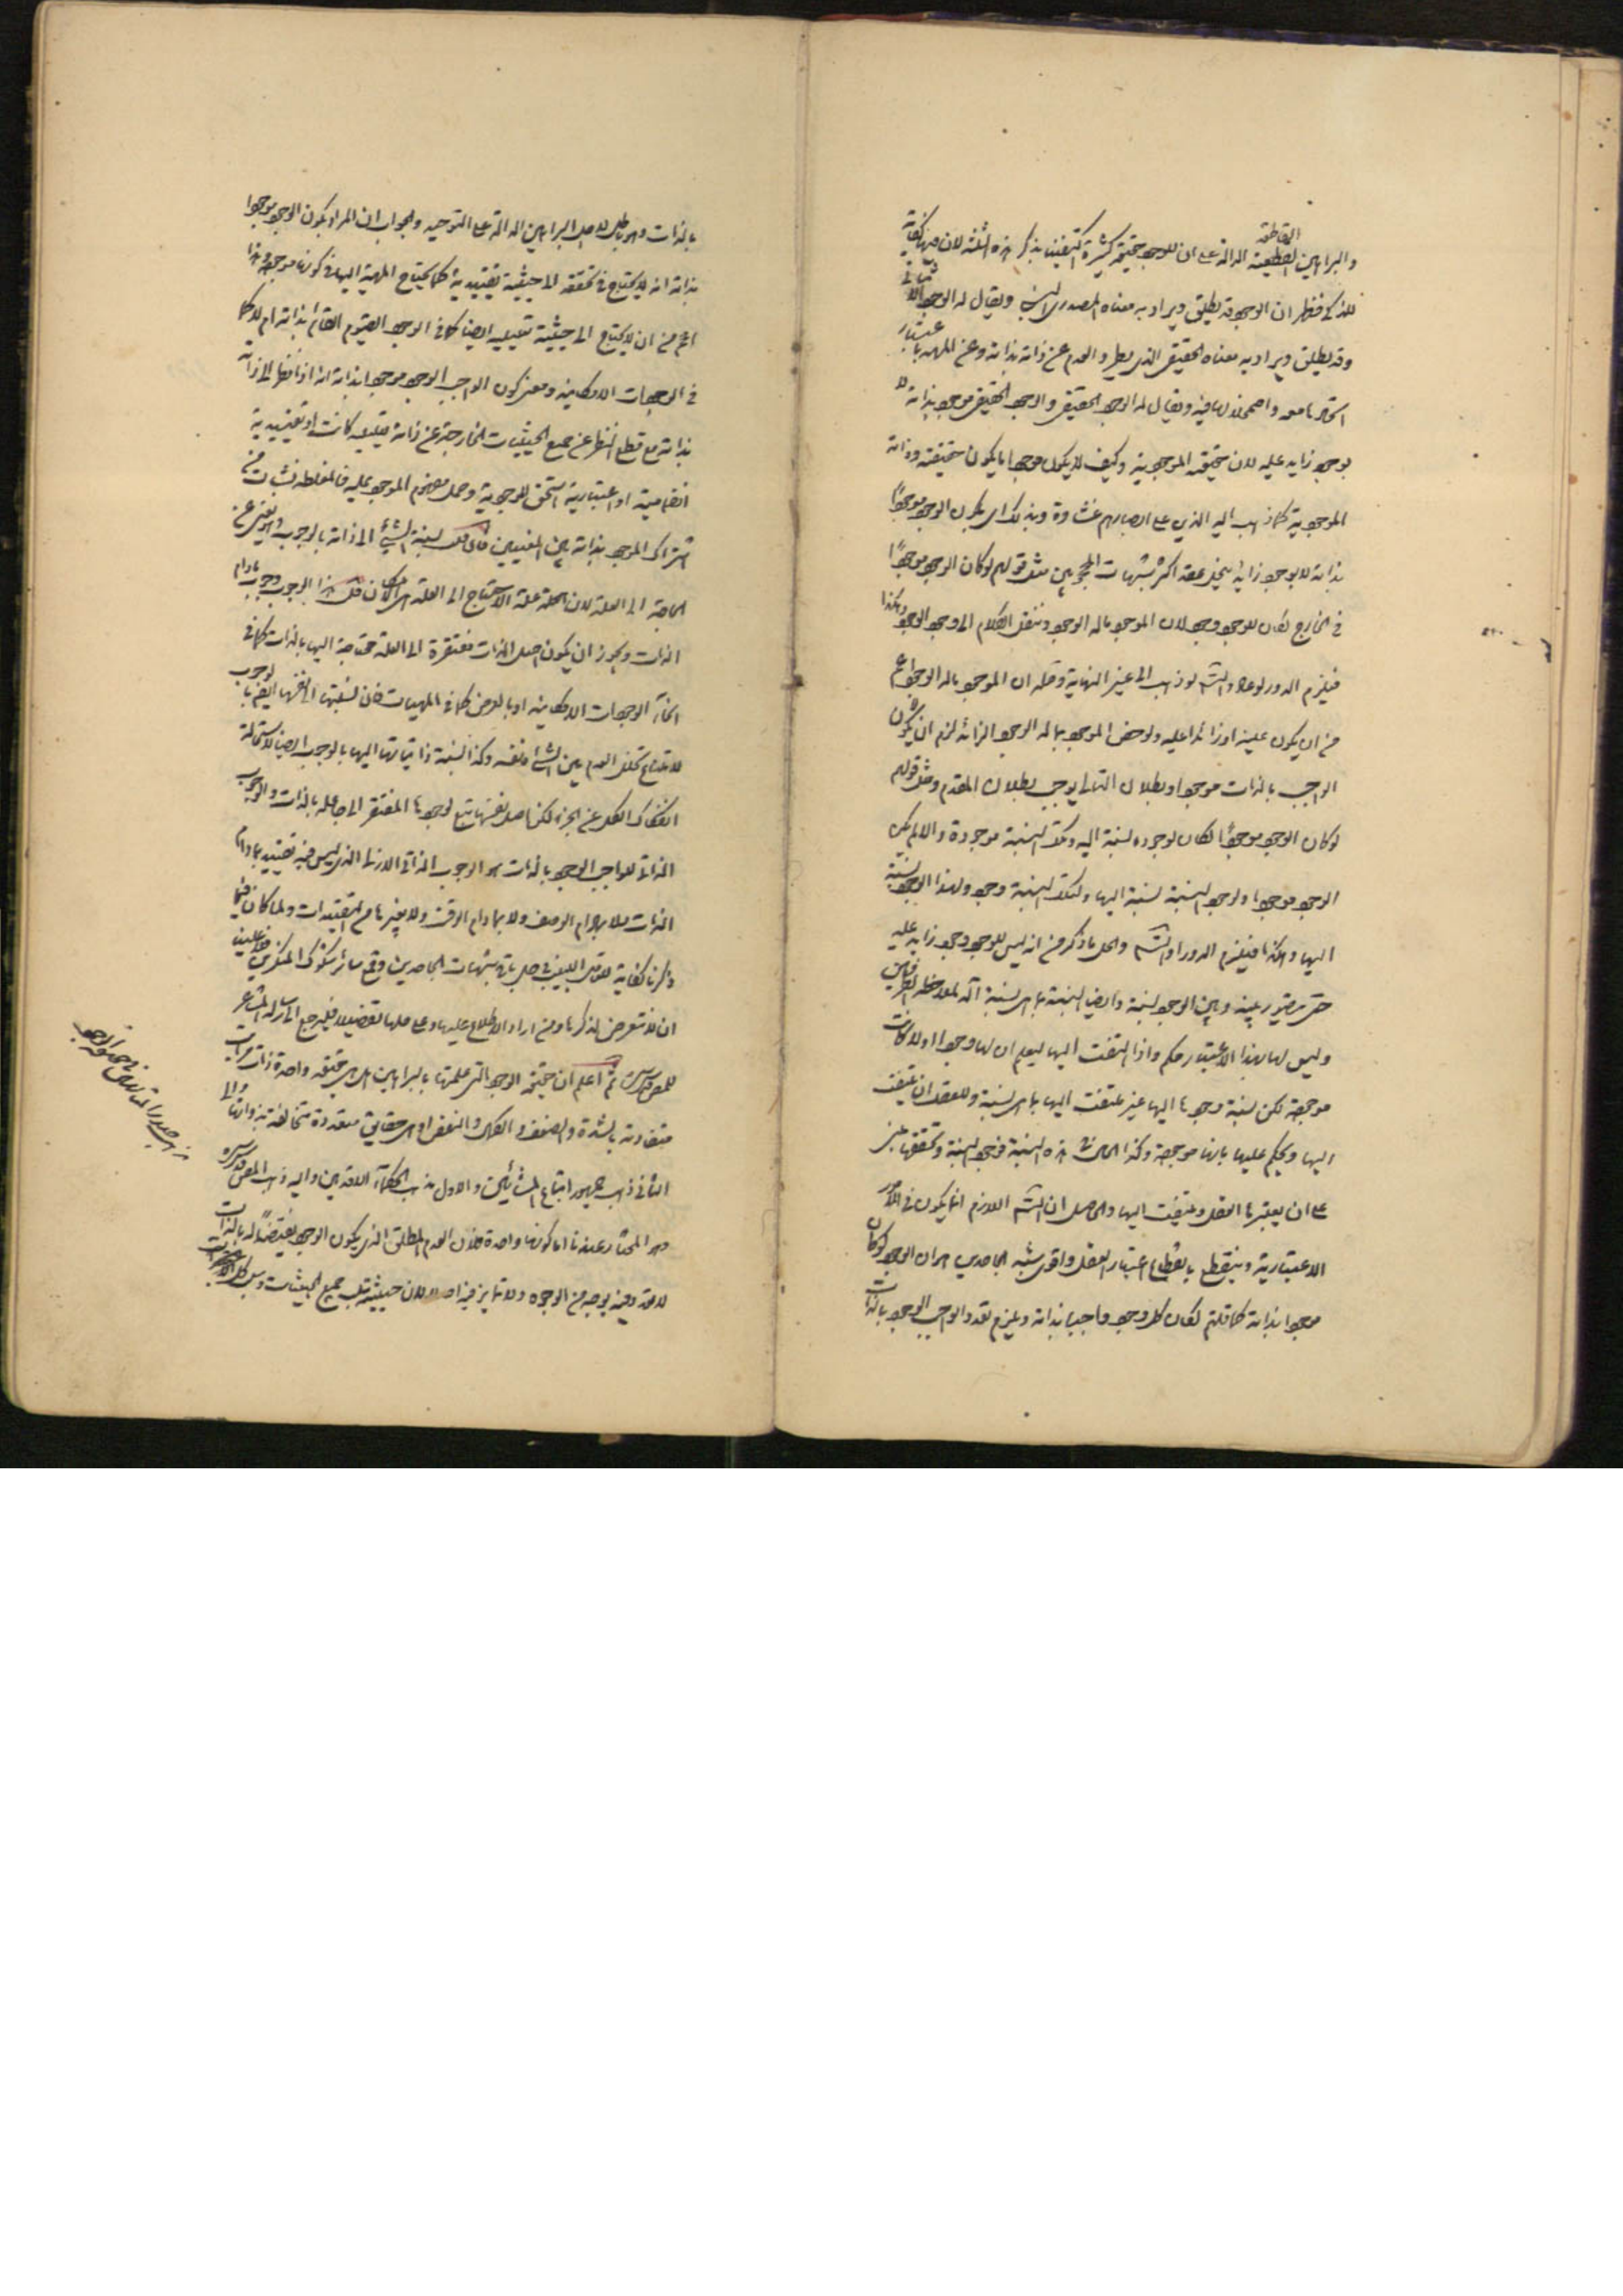 والبراهين القطعية الدالة على ان للوجود حقيقة كثيرة اكتفينا بذكر هذه الثلثة لان فيها كفاية
القاطعة
للذكى فظهر ان الوجود قد يطلق ويراد به معناه المصدرى النسبى ويقال له الوجود الاثباتى
وقد يطلق ويراد به معناه الحقيقى الذى يطرد العدم عن ذاته بذاته وعن المهية باعتبار
اتحادها معه واضمحلالها فيه ويقال له الوجود الحقيقى والوجود الحقيقى موجود بذاته لا
بوجود زايد عليه لان حقيقته الموجودية وكيف لا يكون موجودا ما يكون حقيقته وذاته
الموجودية كما ذهب اليه الذين على ابصارهم غشاوة وبذلك اى بكون الوجود موجودًا
بذاته لا بوجود زايد ينحل عقد اكثر شبهات المحجوبين مثل قولهم لو كان الوجود موجودًا
فى الخارج لكان للوجود وجود لان الموجود ما له الوجود وننقل الكلام الى وجود الوجود وهكذا
فيلزم الدور لو عاد والتس لو ذهب الى غير النهاية وحله ان الموجود ما له الوجود اعم
من ان يكون عينه او زائدا عليه ولو خص الموجود بما له الوجود الزائد لزم ان لا يكون
الواجب بالذات موجودا وبطلان التالى يوجب بطلان المقدم ومثل قولهم
لو كان الوجود موجودًا لكان لوجوده نسبة اليه وتلك النسبة موجودة والا لم يكن
الوجود موجودا ولوجود النسبة نسبة اليها ولتلك النسبة وجود ولهذا الوجود نسبة
اليها وهكذا فيلزم الدور او التس والحل ما ذكر من انه ليس للوجود وجود زايد عليه
حتى يتصور بينه وبين الوجود نسبة وايضا النسبة بما هى نسبة آلة لملاحظة الطرفين
وليس لها بهذا الاعتبار حكم واذا التفت اليها ليعلم ان لها وجودا اولا كانت
موجودة لكن نسبة وجودها اليها غير ملتفت اليها بما هى نسبة وللعقل ان يلتفت
اليها ويحكم عليها بانها موجودة وكذا الحال فى هذه النسبة فوجود النسبة وتحققها مبنى
على ان يعتبرها العقل ويلتفت اليها والحاصل ان التس اللازم انما يكون فى الامور
الاعتبارية وينقطع بانقطاع اعتبار العقل واقوى شبه الجاحدين هو ان الوجود لو كان
موجودا بذاته كما قلتم لكان كل وجود واجبا بذاته ويلزم تعدد الواجب الوجود بالذات
بالذات وهو باطل لاصل البراهين الدالة على التوحيد والجواب ان المراد بكون الوجود موجودا
بذاته انه لا يحتاج فى تحققه الى حيثية تقييدية كما يحتاج المهية اليها فى كونها موجودة وهذا
اعم من ان لا يحتاج الى حيثية تعليلية ايضا كما فى الوجود القيوم القائم بذاته ام لا كما
فى الوجودات الامكانية ومعنى كون الواجب الوجود موجودا بذاته انه اذا نظر الى ذاته
بذاته مع قطع النظر عن جميع الحيثيات الخارجة عن ذاته تعليلية كانت او تقييدية
انضمامية او اعتبارية استحق للموجودية وحمل مفهوم الموجود عليه فالمغلطة نشأت من
اشتراك الموجود بذاته بين المعنيين فان قلت نسبة الشئ الى ذاته بالوجوب وهو يغنى عن
الحاجة الى العلة لان العلة علة الاحتياج الى العلة هى الامكان قلت هذا الوجوب وجوب مادام
الذات ويجوز ان يكون اصل الذات مفتقرة الى العلة محتاجة اليها بالذات كما فى
انحاء الوجودات الامكانية او بالعرض كما فى المهيات فان نسبتها الى نفسها ايضا بالوجوب
لامتناع تخلل العدم بين الشئ ونفسه وكذا نسبة ذاتياتها اليها بالوجوب ايضا لاستحالة
انفكاك الكل عن الجزء لكن اصل نفسها يتبع لوجودها المفتقر الى جاعله بالذات والوجوب
الذاتى للواجب الوجود بالذات هو الوجوب الذاتى الازلى الذى ليس فيه تقييد بمادام
الذات ولا بمادام الوصف ولا بمادام الوقت ولا بغيرها من التقييدات ولما كان فيما
ذكرنا كفاية للعاقل اللبيب فى حل باقى شبهات الجاحدين وقمع سائر شكوك المنكرين
ان لا نتعرض لذكرها ومن اراد الاطلاع عليها وعلى حلها تفصيلا فليرجع الى رسالة المشاعر
للمص قدس سره ثم اعلم ان حقيقة الوجود التى علمتها بالبراهين هل هى حقيقة واحدة ذات مراتب
متفاوتة بالشدة والضعف والكمال والنقص او هى حقايق متعددة متخالفة بذواتها والى
الثانى ذهب جمهور اتباع المشائين والاول مذهب الحكماء الاقدمين واليه ذهب المص قدس سره
وهو المختار عندنا اما كونها واحدة فلان العدم المطلق الذى يكون الوجود نقيضًا له بالذات
لا تعدد فيه بوجه من الوجوه ولا تمايز فيه اصلا لان حيثيته سلب جميع الحيثيات